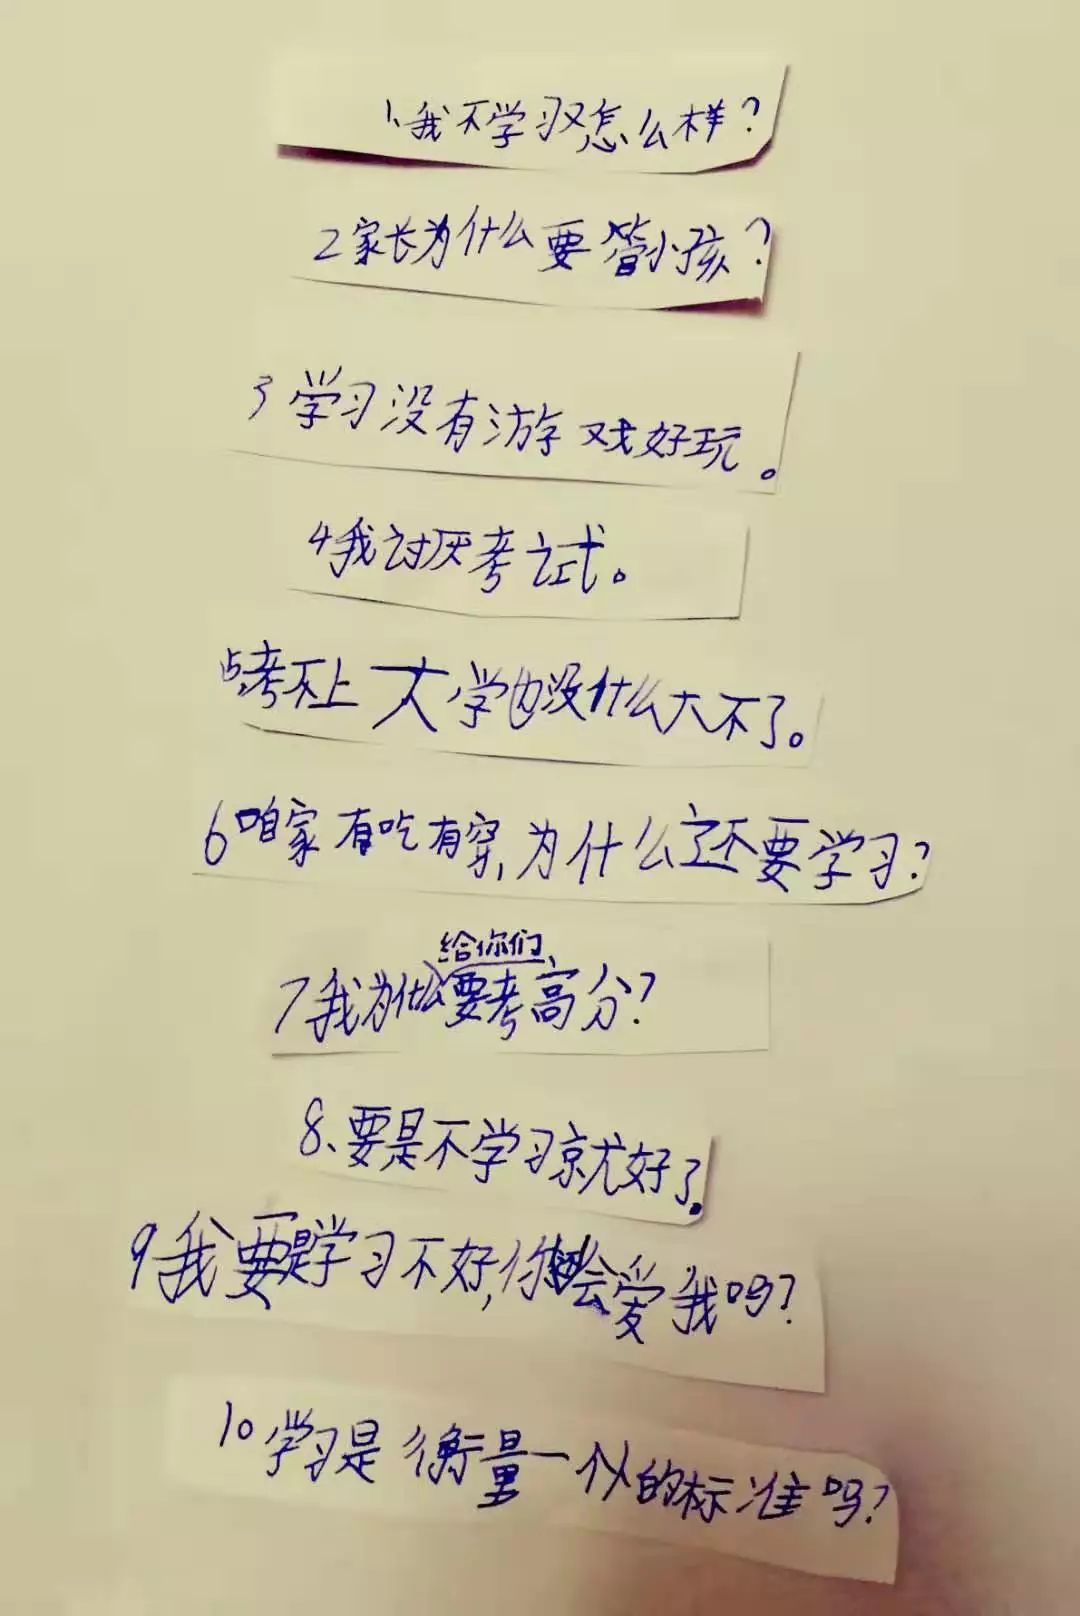 1、我不学习又怎么样？
2家长为什么要管小孩？
3学习没有游戏好玩。
4我讨厌考试。
5考不上大学也没什么大不了。
6咱家有吃有穿,为什么还要学习？
给你们
7我为什么要考高分？
8、要是不学习就好了。
9我要是学习不好,你还会爱我吗？
10学习是衡量一个人的标准吗？